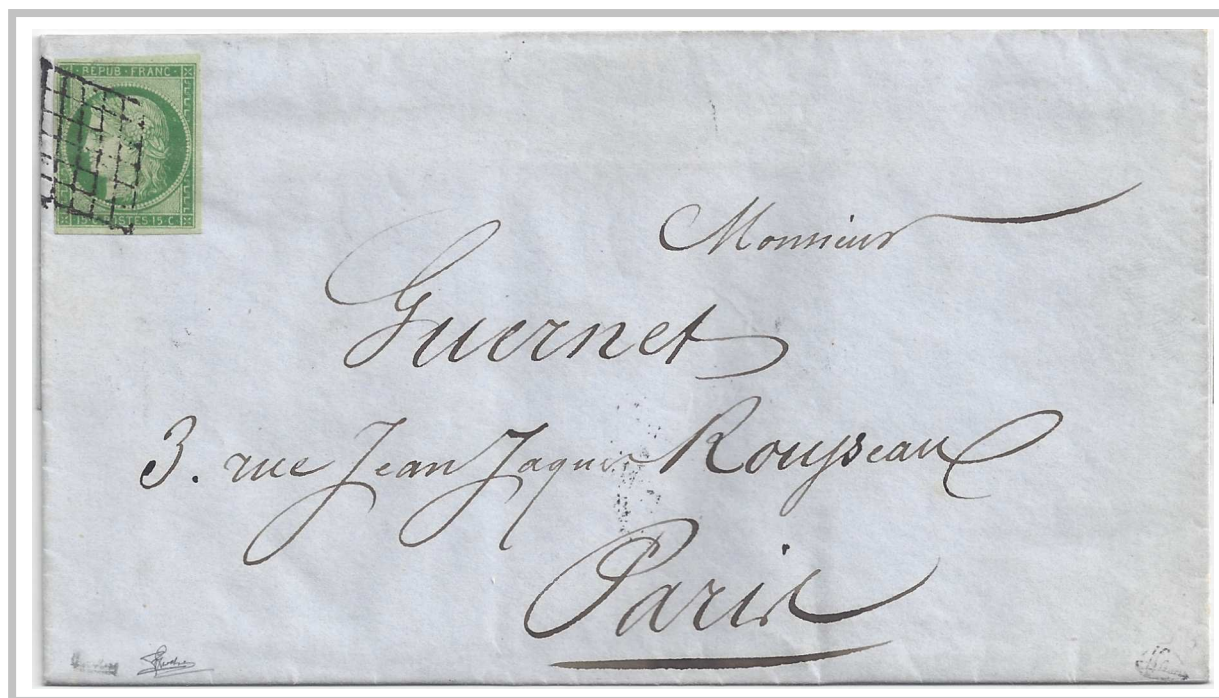 REPUB · FRANC
15 C. POSTES 15 C.
Monsieur
Guernet
3. rue Jean Jaques Rousseau
Paris